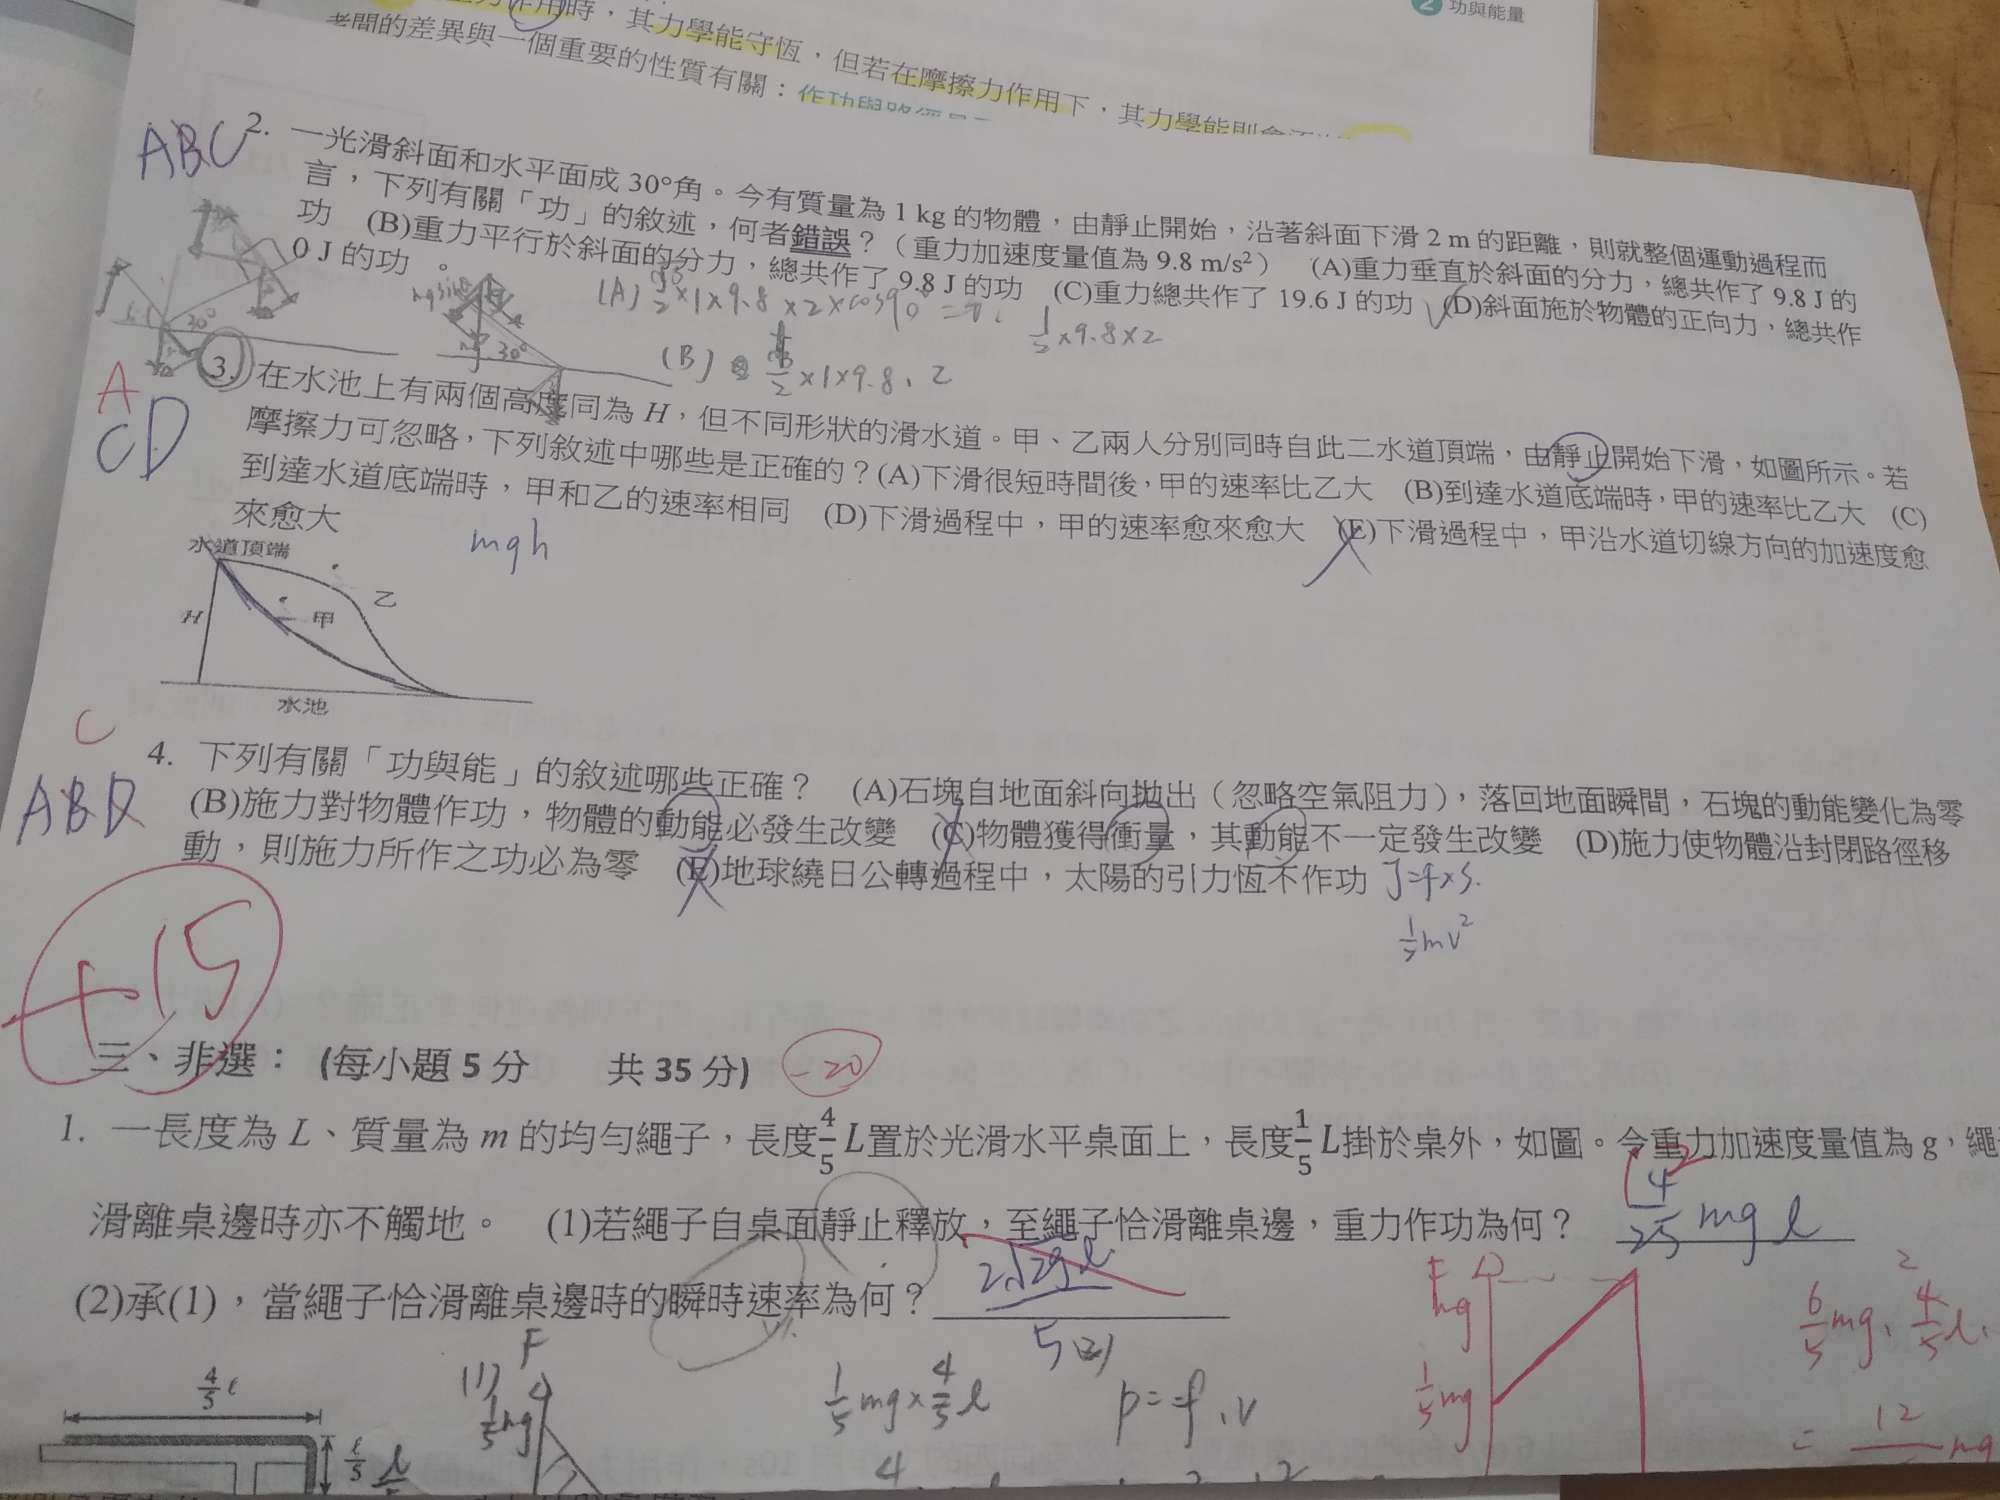 作用時，其力學能守恆，但若在摩擦力作用下，其力學能則會
2 功與能量
者間的差異與一個重要的性質有關：作功與路徑
ABC
2. 一光滑斜面和水平面成 30°角。今有質量為 1 kg 的物體，由靜止開始，沿著斜面下滑 2 m 的距離，則就整個運動過程而
言，下列有關「功」的敘述，何者錯誤？（重力加速度量值為 9.8 m/s²） (A)重力垂直於斜面的分力，總共作了 9.8 J 的
功 (B)重力平行於斜面的分力，總共作了 9.8 J 的功 (C)重力總共作了 19.6 J 的功 (D)斜面施於物體的正向力，總共作
0 J 的功。
mgsinθ
30°
30°
(A) ×1×9.8×2×cos90°
1/2 ×9.8×2
(B) ×1×9.8．2
A
CD
3. 在水池上有兩個高度同為 H，但不同形狀的滑水道。甲、乙兩人分別同時自此二水道頂端，由靜止開始下滑，如圖所示。若
摩擦力可忽略，下列敘述中哪些是正確的？(A)下滑很短時間後，甲的速率比乙大 (B)到達水道底端時，甲的速率比乙大 (C)
到達水道底端時，甲和乙的速率相同 (D)下滑過程中，甲的速率愈來愈大 (E)下滑過程中，甲沿水道切線方向的加速度愈
來愈大
mgh
水道頂端
乙
甲
H
水池
C
ABD
4. 下列有關「功與能」的敘述哪些正確？ (A)石塊自地面斜向拋出（忽略空氣阻力），落回地面瞬間，石塊的動能變化為零
(B)施力對物體作功，物體的動能必發生改變 (C)物體獲得衝量，其動能不一定發生改變 (D)施力使物體沿封閉路徑移
動，則施力所作之功必為零 (E)地球繞日公轉過程中，太陽的引力恆不作功
J=f×s.
1/2 mv²
+15
三、非選： (每小題 5 分 共 35 分)
-20
1. 一長度為 L、質量為 m 的均勻繩子，長度 4/5 L置於光滑水平桌面上，長度 1/5 L掛於桌外，如圖。今重力加速度量值為 g，繩
滑離桌邊時亦不觸地。 (1)若繩子自桌面靜止釋放，至繩子恰滑離桌邊，重力作功為何？
4/25 mgl
12
(2)承(1)，當繩子恰滑離桌邊時的瞬時速率為何？
2√2gl
5
F
mg
1/5 mg
6/5 mg．4/5 l．
2
= 12 mg
4/5 ℓ
ℓ/5
(1)
F
1/5 mg
1/5 mg×4/5 l
p=f．v
4